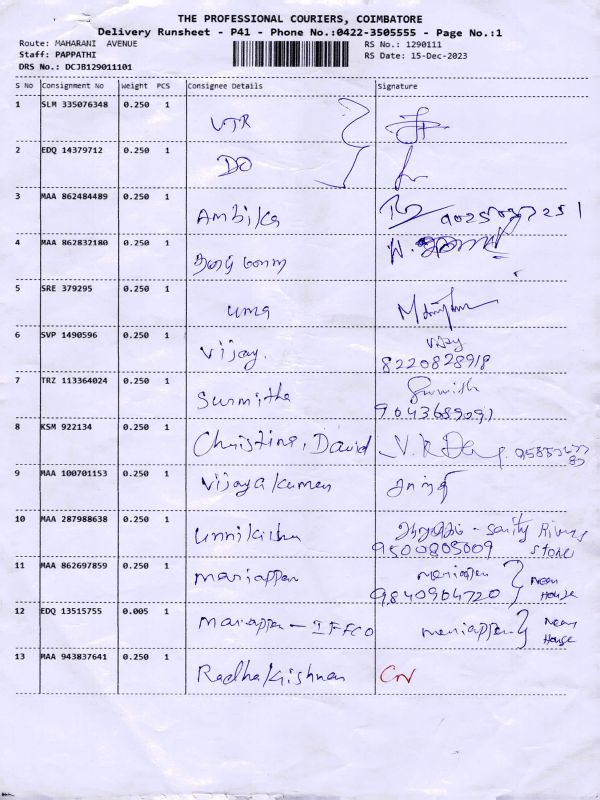 THE PROFESSIONAL COURIERS, COIMBATORE
Delivery Runsheet - P41 - Phone No.:0422-3505555 - Page No.:1
Route: MAHARANI AVENUE RS No.: 1290111
Staff: PAPPATHI RS Date: 15-Dec-2023
DRS No.: DCJB129011101
S No Consignment No Weight PCS Consignee Details Signature
1 SLM 335076348 0.250 1 VTR
2 EDQ 14379712 0.250 1 DO
3 MAA 862484489 0.250 1 Ambika
4 MAA 862832180 0.250 1
5 SRE 379295 0.250 1 uma
6 SVP 1490596 0.250 1 Vijay. Vijay
8220828918
7 TRZ 113364024 0.250 1 Surmitha
9043689091
8 KSM 922134 0.250 1 Christina, David
9 MAA 100701153 0.250 1 Vijayakumar
10 MAA 287988638 0.250 1 unnikishu
9500805009 Stone
11 MAA 862697859 0.250 1 mariappan mariappan Near House
9840904720
12 EDQ 13515755 0.005 1 Mariappan - IFFCO mariappan Near House
13 MAA 943837641 0.250 1 Radhakrishnan CN